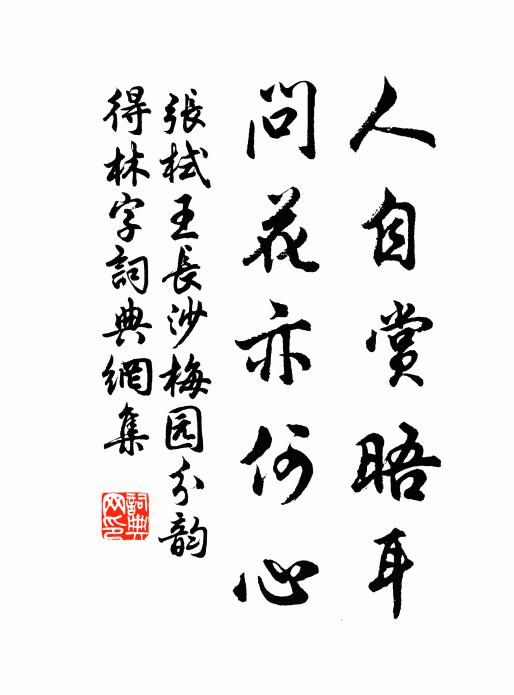 人自赏晤耳
问花亦何心
張栻王長沙梅园分韵
得林字詞典網集
詞典网印